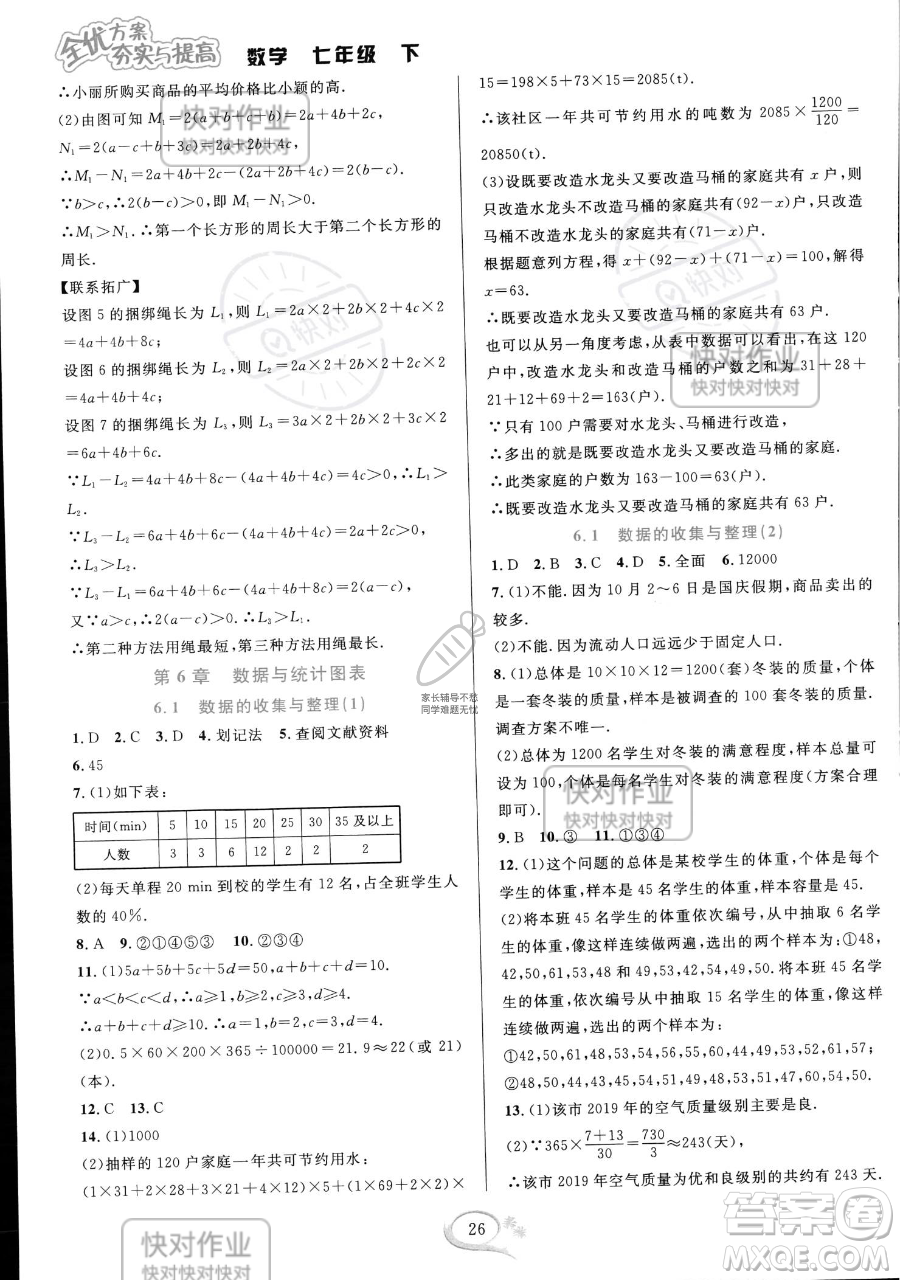 全优方案
夯实与提高
数学 七年级 下
∴小丽所购买商品的平均价格比小颖的高.
(2)由图可知 M₁=2(a+b+c+b)=2a+4b+2c,
N₁=2(a-c+b+3c)=2a+2b+4c,
∴M₁-N₁=2a+4b+2c-(2a+2b+4c)=2(b-c).
∵b>c,∴2(b-c)>0,即 M₁-N₁>0.
∴M₁>N₁.∴第一个长方形的周长大于第二个长方形的
周长.
【联系拓广】
设图 5 的捆绑绳长为 L₁,则 L₁=2a×2+2b×2+4c×2
=4a+4b+8c;
设图 6 的捆绑绳长为 L₂,则 L₂=2a×2+2b×2+2c×2
=4a+4b+4c;
设图 7 的捆绑绳长为 L₃,则 L₃=3a×2+2b×2+3c×2
=6a+4b+6c.
∵L₁-L₂=4a+4b+8c-(4a+4b+4c)=4c>0,∴L₁>
L₂.
∵L₃-L₂=6a+4b+6c-(4a+4b+4c)=2a+2c>0,
∴L₃>L₂.
∵L₃-L₁=6a+4b+6c-(4a+4b+8c)=2(a-c),
∵a>c,∴2(a-c)>0.∴L₃>L₁.
∴第二种方法用绳最短,第三种方法用绳最长.
第 6 章 数据与统计图表
6.1 数据的收集与整理(1)
1. D 2. C 3. D 4. 划记法 5. 查阅文献资料
6. 45
7. (1)如下表:
时间(min) 5 10 15 20 25 30 35 及以上
人数 3 3 6 12 2 2 2
(2)每天单程 20 min 到校的学生有 12 名,占全班学生人
数的 40%.
8. A 9. ②①④⑤③ 10. ②③④
11. (1)5a+5b+5c+5d=50,∴a+b+c+d=10.
∵a<b<c<d,∴a≥1,b≥2,c≥3,d≥4.
∴a+b+c+d≥10.∴a=1,b=2,c=3,d=4.
(2)0.5×60×200×365÷100000=21.9≈22(或 21)
(本).
12. C 13. C
14. (1)1000
(2)抽样的 120 户家庭一年共可节约用水:
(1×31+2×28+3×21+4×12)×198+(1×69+2×2)×
15=198×5+73×15=2085(t).
∴该社区一年共可节约用水的吨数为 2085×1200/120=
20850(t).
(3)设既要改造水龙头又要改造马桶的家庭共有 x 户,则
只改造水龙头不改造马桶的家庭共有(92-x)户,只改造
马桶不改造水龙头的家庭共有(71-x)户.
根据题意列方程,得 x+(92-x)+(71-x)=100,解得
x=63.
∴既要改造水龙头又要改造马桶的家庭共有 63 户.
也可以从另一角度考虑,从表中数据可以看出,在这 120
户中,改造水龙头和改造马桶的户数之和为 31+28+
21+12+69+2=163(户).
∵只有 100 户需要对水龙头、马桶进行改造,
∴多出的就是既要改造水龙头又要改造马桶的家庭.
∴此类家庭的户数为 163-100=63(户).
∴既要改造水龙头又要改造马桶的家庭共有 63 户.
6.1 数据的收集与整理(2)
1. D 2. B 3. C 4. D 5. 全面 6. 12000
7. (1)不能. 因为 10 月 2~6 日是国庆假期,商品卖出的
较多.
(2)不能. 因为流动人口远远少于固定人口.
8. (1)总体是 10×10×12=1200(套)冬装的质量,个体
是一套冬装的质量,样本是被调查的 100 套冬装的质量.
调查方案不唯一.
(2)总体为 1200 名学生对冬装的满意程度,样本总量可
设为 100,个体是每名学生对冬装的满意程度(方案合理
即可).
9. B 10. ③ 11. ①③④
12. (1)这个问题的总体是某校学生的体重,个体是每个
学生的体重,样本是 45 名学生的体重,样本容量是 45.
(2)将本班 45 名学生的体重依次编号,从中抽取 6 名学
生的体重,像这样连续做两遍,选出的两个样本为:①48,
42,50,61,67,51;②49,53,54,50,61,53.将本班 45 名学
生的体重,依次编号从中抽取 15 名学生的体重,像这样
连续做两遍,选出的两个样本为:
①42,50,61,48,53,54,55,46,50,49,53,52,61,51,57;
②48,50,61,67,51,53,54,61,49,53,54,50,61,53,48.
13. (1)该市 2019 年的空气质量级别主要是良.
(2)∵365×7+13/30=730/3≈243(天),
∴该市 2019 年空气质量为优和良级别的共约有 243 天.
26
快对作业
快对快对快对
快对作业
快对快对快对
快对
快对
家长辅导不愁
同学难题无忧
快对作业
快对快对快对
快对作业
快对快对快对
快对作业
答案圈
MXQE.COM